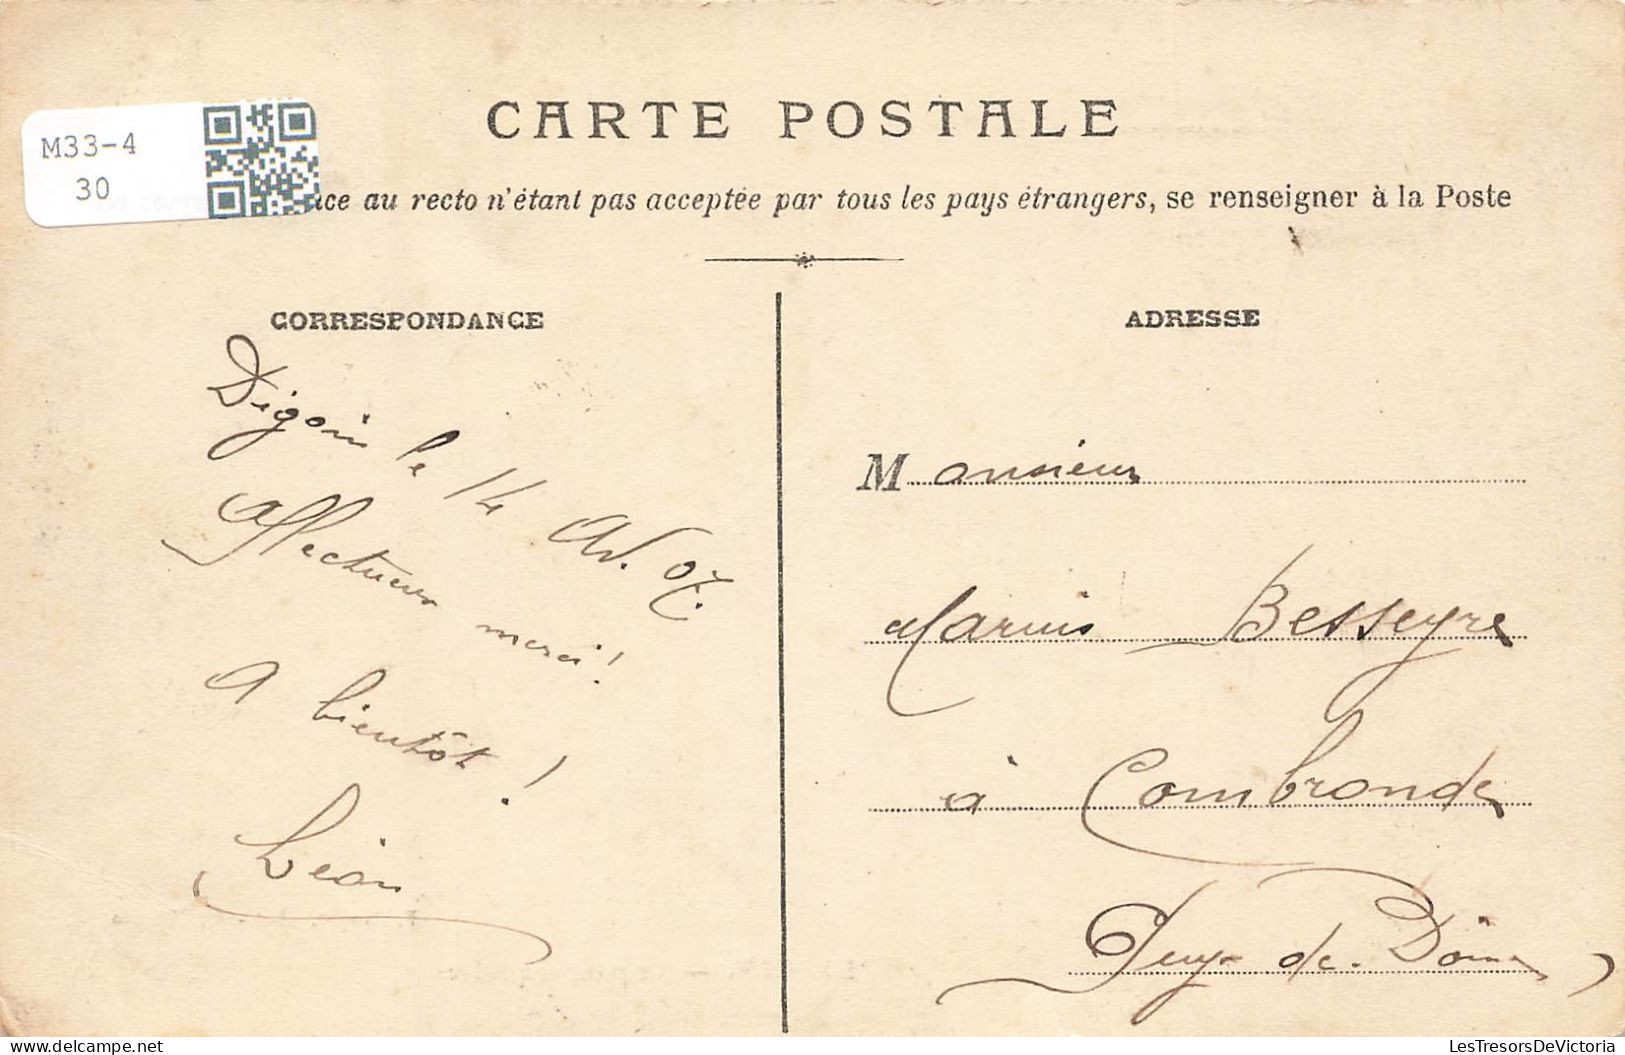 CARTE POSTALE
M33-4
30
au recto n'étant pas acceptée par tous les pays étrangers, se renseigner à la Poste
CORRESPONDANCE
Digoin le 14 Av. 07.
Affectueux merci!
A bientôt!
Léon
ADRESSE
Monsieur
Marius Besseyre
à Combronde
Puy-de-Dôme
LesTresorsDeVictoria
delcampe.net